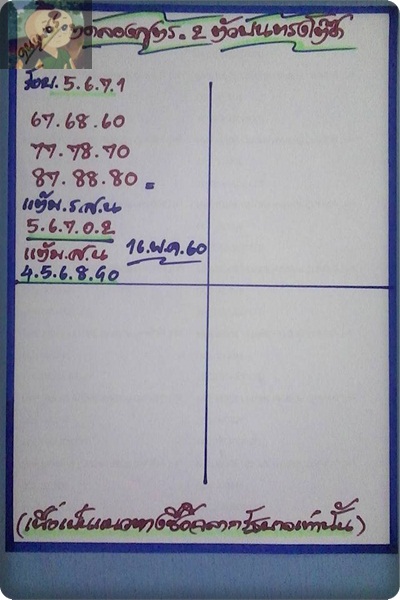 ทดลองสูตร. 2 ตัวบนทรงโต๊ด
ร้อย. 5.6.7.1
67.68.60
77.78.70
87.88.80
แต้ม.ร.ส.น
5.6.7.0.2
แต้ม.ส.น 16.พ.ค.60
4.5.6.8.90
(เพื่อเป็นแนวทางซื้อสลากรัฐบาลเท่านั้น)